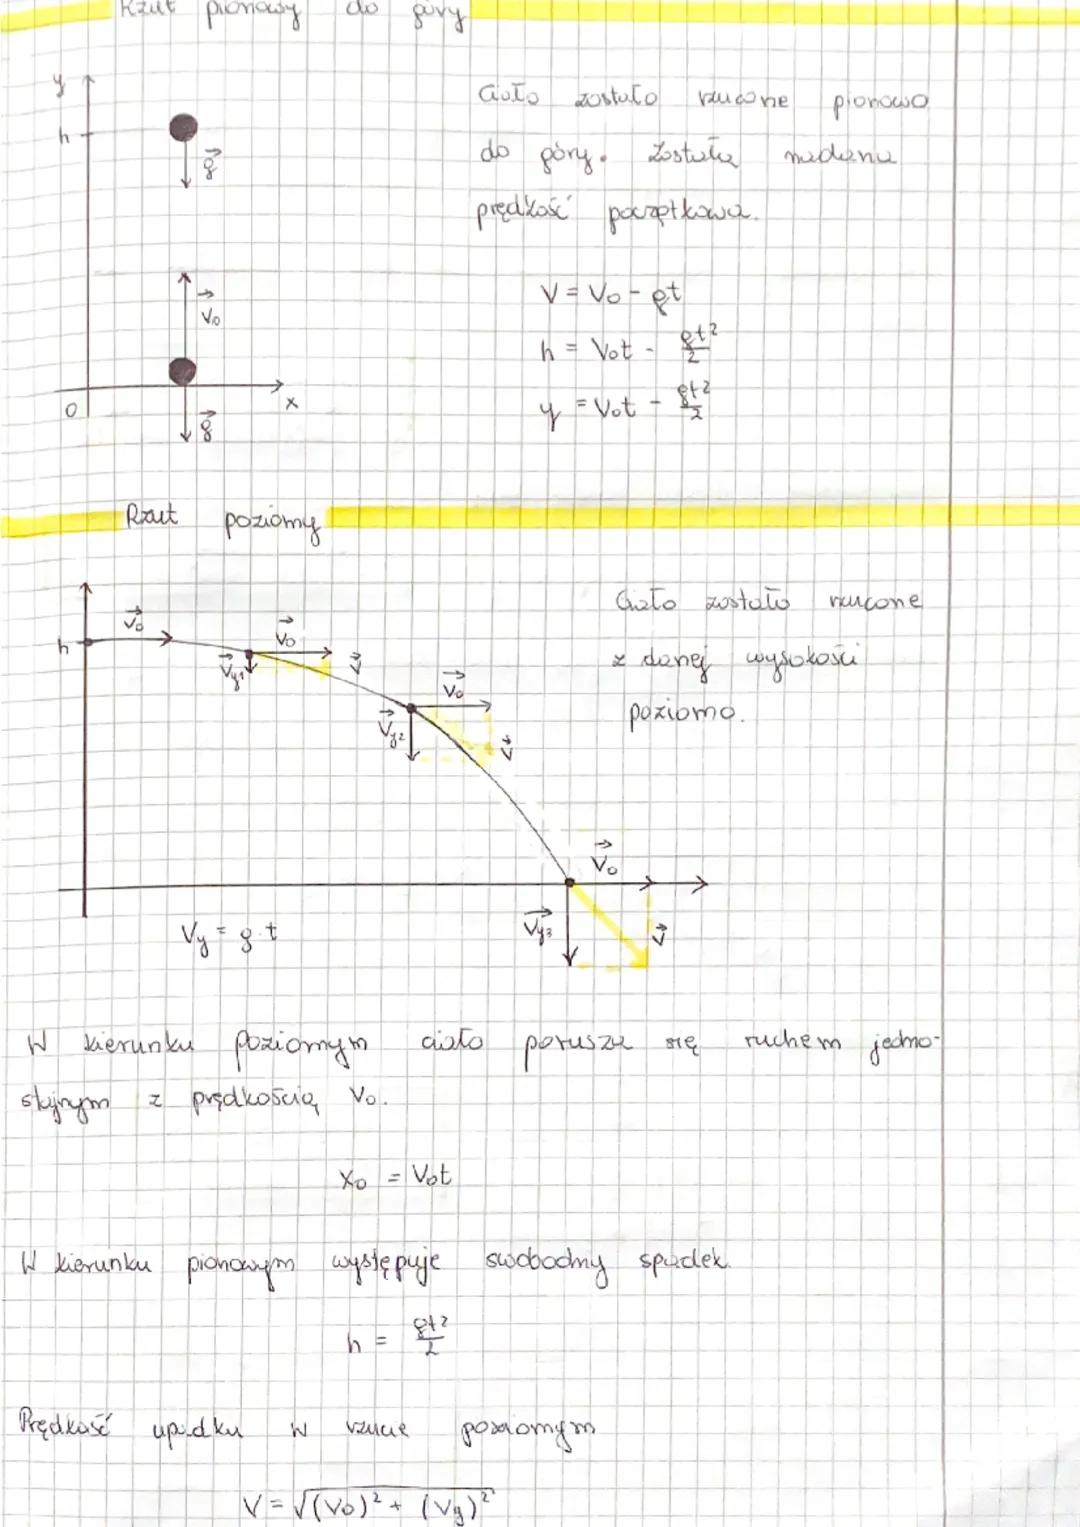 Rzut pionowy do góry
y
h
g
Ciało zostało rzucone pionowo
do góry. Została nadana
prędkość początkowa.
V₀
V = V₀ - gt
h = V₀t - gt²/2
y = V₀t - gt²/2
0
x
g
Rzut poziomy
h
V₀
V₀
Vy₁
V
V₀
Vy₂
V
Ciało zostało rzucone
z danej wysokości
poziomo.
V₀
Vy₃
V
Vy = g·t
W kierunku poziomym ciało porusza się ruchem jedno-
stajnym z prędkością V₀.
X₀ = V₀t
W kierunku pionowym występuje swobodny spadek.
h = gt²/2
Prędkość upadku w rzucie poziomym
V = √(V₀)² + (Vy)²